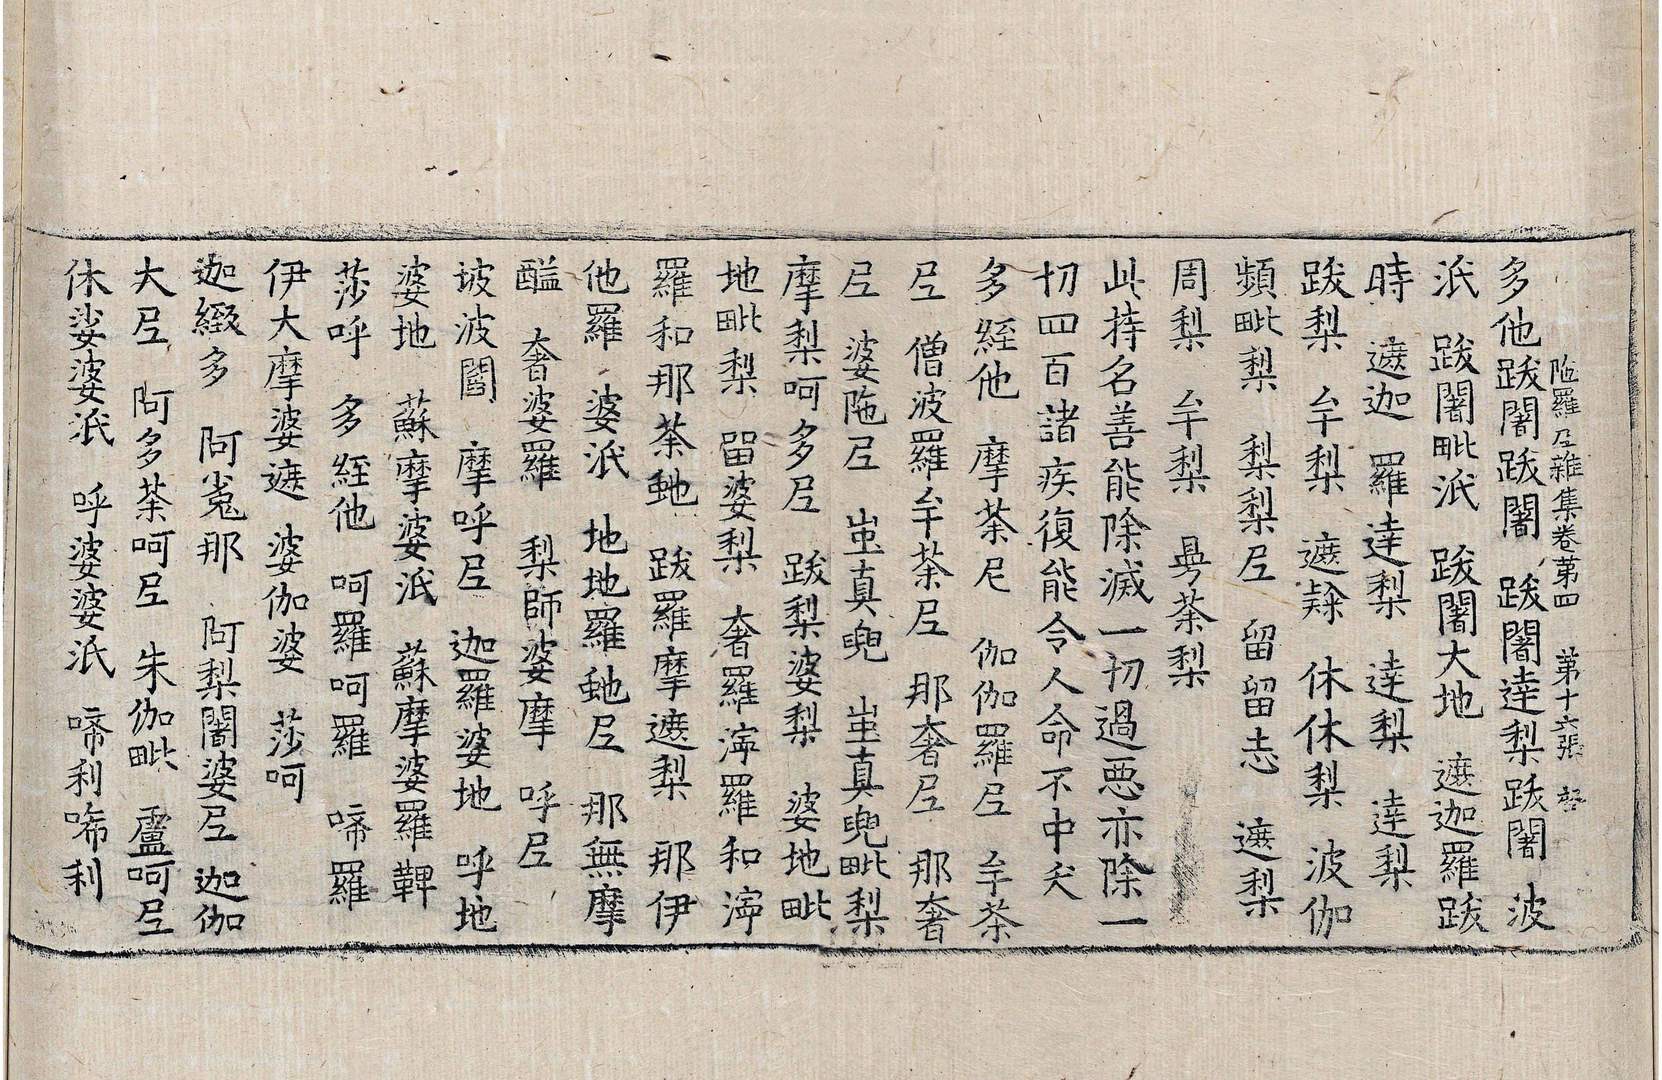 陁羅尼雜集卷第四　第十六張
多他 跋闍跋闍 跋闍達梨 跋闍 波
泜 跋闍毗泜 跋闍大地 遮迦羅跋
時 遮迦 羅達梨 達梨 達梨
跋梨 牟梨 遮 休休梨 波伽
頻毗梨 梨梨尼 留留志 遮梨
周梨 牟梨 茶梨
此持名善能除滅一切過惡亦除一
切四百諸疾復能令人命不中夭
多絰他 摩茶尼 伽伽羅尼 牟茶
尼 僧波羅牟茶尼 那奢尼 那奢
尼 婆陁尼 蚩真兜 蚩真兜毗梨
摩梨呵多尼 跋梨婆梨 婆地毗
地毗梨 留婆梨 奢羅濘羅和濘
羅和那茶虵 跋羅摩遮梨 那伊
他羅 婆泜 地地羅虵尼 那無摩
醯 奢婆羅 梨師婆摩 呼尼
坡波閻 摩呼尼 迦羅婆地 呼地
婆地 蘇摩婆泜 蘇摩婆羅鞞
莎呼 多絰他 呵羅呵羅 啼羅
伊大摩婆遮 婆伽婆 莎呵
迦綴多 阿㝹那 阿梨闍婆尼 迦伽
大尼 阿多茶呵尼 朱伽毗 盧呵尼
休娑婆泜 呼婆婆泜 啼利啼利